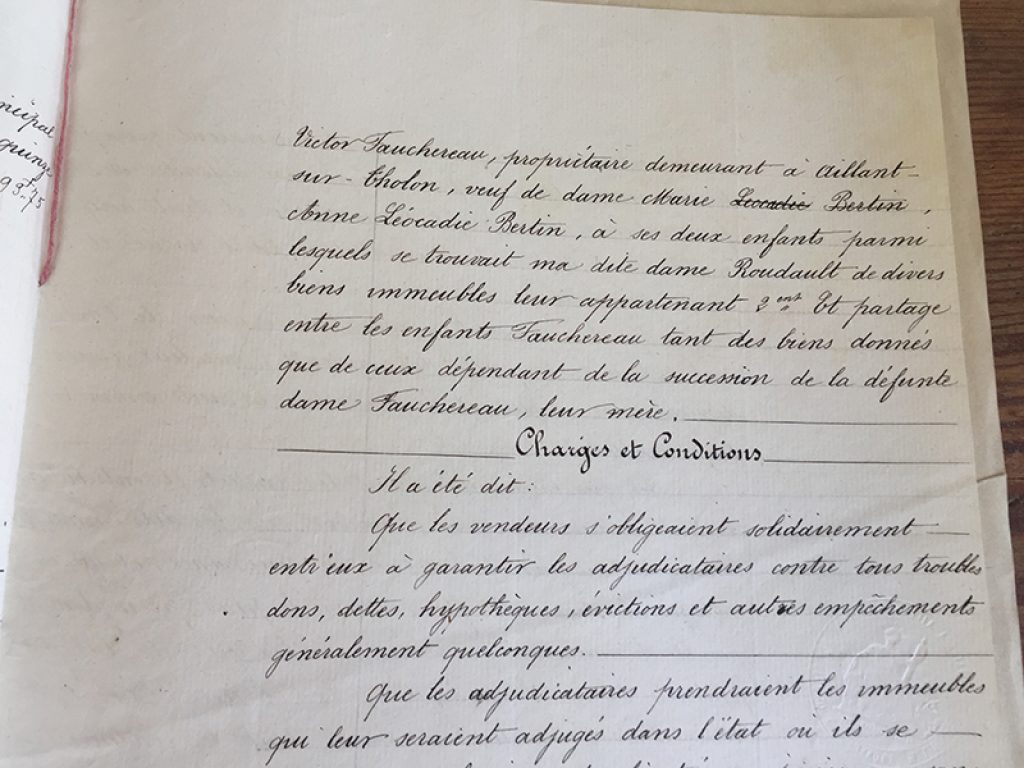 ncipal
quinze
98.75
Victor Fauchereau, propriétaire demeurant à Aillant-
sur-Tholon, veuf de dame Marie Léocadie Bertin,
Anne Léocadie Bertin, à ses deux enfants parmi
lesquels se trouvait ma dite dame Roudault de divers
biens immeubles leur appartenant 2ent Et partage
entre les enfants Fauchereau tant des biens donnés
que de ceux dépendant de la succession de la défunte
dame Fauchereau, leur mère.
Charges et Conditions
Il a été dit:
Que les vendeurs s'obligeaient solidairement
entr'eux à garantir les adjudicataires contre tous troubles
dons, dettes, hypothèques, évictions et autres empêchements
généralement quelconques.
Que les adjudicataires prendraient les immeubles
qui leur seraient adjugés dans l'état où ils se